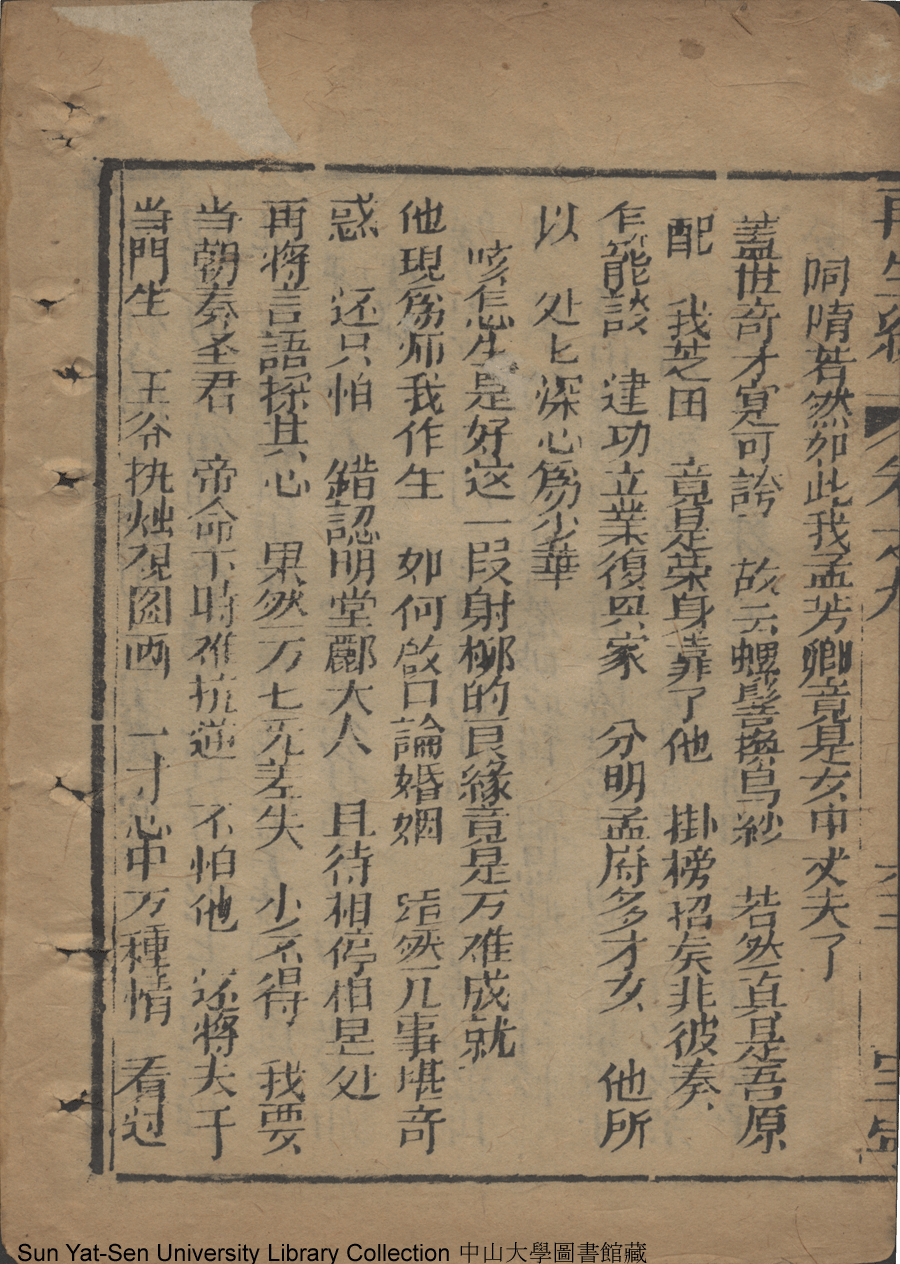 再生緣 卷之九 六十三 宝
呵唷若然如此我孟芳卿竟是女中丈夫了
蓋世奇才寔可誇 故云螺髻換烏紗 若然真是吾原
配 我芝田 竟是荣身靠了他 掛榜招矣非彼奏
乍能談 建功立業復兴家 分明孟府多才女 他所
以 处匕深心為少華
咳怎生是好这一段射柳的良緣竟是万难成就
他現為师我作生 如何啟口論婚姻 虽然凡事堪奇
惑 还只怕 錯認明堂酈大人 且待相停相見处
再将言語探其心 果然万七无差失 少不得 我要
当朝奏圣君 帝命下時难抗違 不怕他 还将夫子
当門生 王爷执烛观图画 一寸心中万種情 看过
Sun Yat-Sen University Library Collection 中山大學圖書館藏